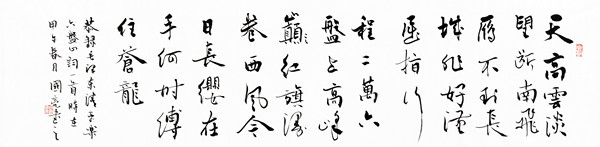 天高雲淡
望斷南飛
雁不到長
城非好漢
屈指行
程二萬六
盤上高峰
巔紅旗漫
卷西風今
日長纓在
手何時縛
住蒼龍
恭錄毛泽東清平樂
六盤山詞一首時在
甲午春月國